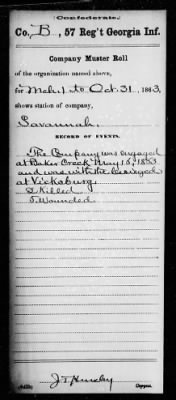 Confederate.
Co. B, 57 Reg't Georgia Inf.
Company Muster Roll
of the organization named above,
for Mch. 1 to Oct. 31, 1863,
shows station of company,
Savannah.
RECORD OF EVENTS.
The Company was engaged
at Baker Creek May 16, 1863
and was with the besieged
at Vicksburg.
2 Killed
5 Wounded
Copyist.